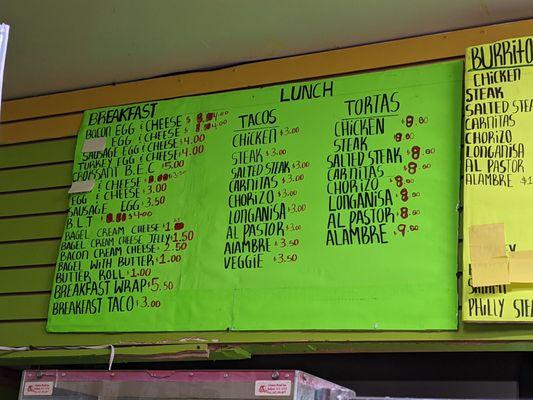 BREAKFAST
BACON EGG & CHEESE $ 4.00
EGG & CHEESE $ 4.00
SAUSAGE EGG & CHEESE $4.00
TURKEY EGG & CHEESE $4.00
CROISSANT B.E.C $5.00
& CHEESE
EGG & CHEESE $3.00
SAUSAGE EGG $3.50
B.L.T $4.00
BAGEL CREAM CHEESE
BAGEL CREAM CHEESE JELLY $1.50
BACON CREAM CHEESE $2.50
BAGEL WITH BUTTER $1.00
BUTTER ROLL $1.00
BREAKFAST WRAP $5.50
BREAKFAST TACO $3.00
LUNCH
TACOS
CHICKEN $3.00
STEAK $3.00
SALTED STEAK $3.00
CARNITAS $3.00
CHORIZO $3.00
LONGANISA $3.00
AL PASTOR $3.00
AlAMBRE $3.50
VEGGIE $3.50
TORTAS
CHICKEN $8.00
STEAK $8.00
SALTED STEAK $8.00
CARNITAS $8.00
CHORIZO $8.00
LONGANISA $8.00
AL PASTOR $8.00
ALAMBRE $9.00
BURRITO
CHICKEN
STEAK
SALTED STEA
CARNITAS
CHORIZO
LONGANISA
AL PASTOR
ALAMBRE $1
PHILLY STE